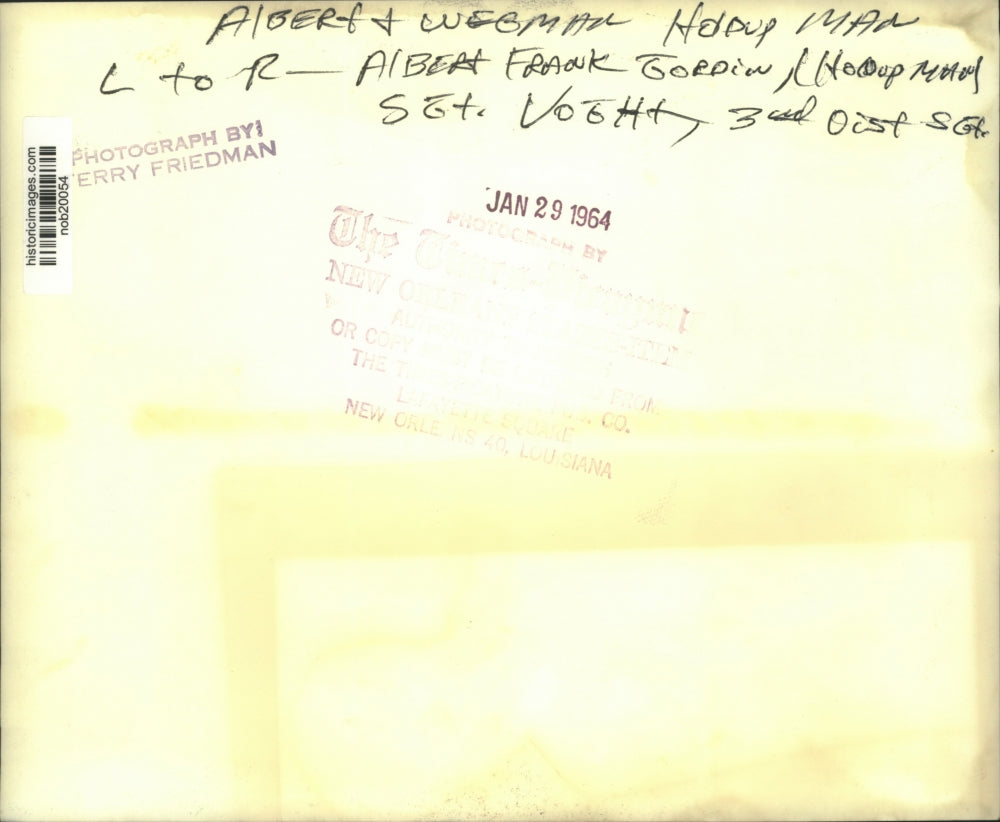 Albert + Wegman Holdup Man
L to R — Albert Frank Gordin, (Holdup Man)
Sgt. Voeht, 3rd Dist Sgt.
PHOTOGRAPH BY
ERRY FRIEDMAN
historicimages.com
nob20054
JAN 29 1964
PHOTOGRAPH BY
The
NEW ORLEANS
OR COPY FROM
THE CO.
LAFAYETTE SQUARE
NEW ORLE NS 40, LOUISIANA